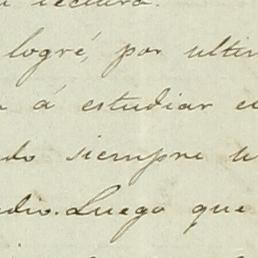 lectura.
logré, por ultim
á estudiar e
do siempre u
edio. Luego que